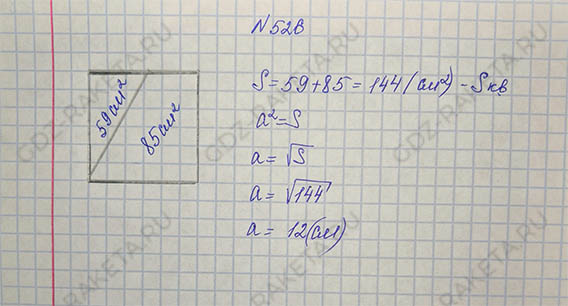 N528
59 см²
85 см²
S = 59 + 85 = 144 (см²) - Sкв
a² = S
a = √S
a = √144
a = 12 (см)
GDZ-RAKETA.RU